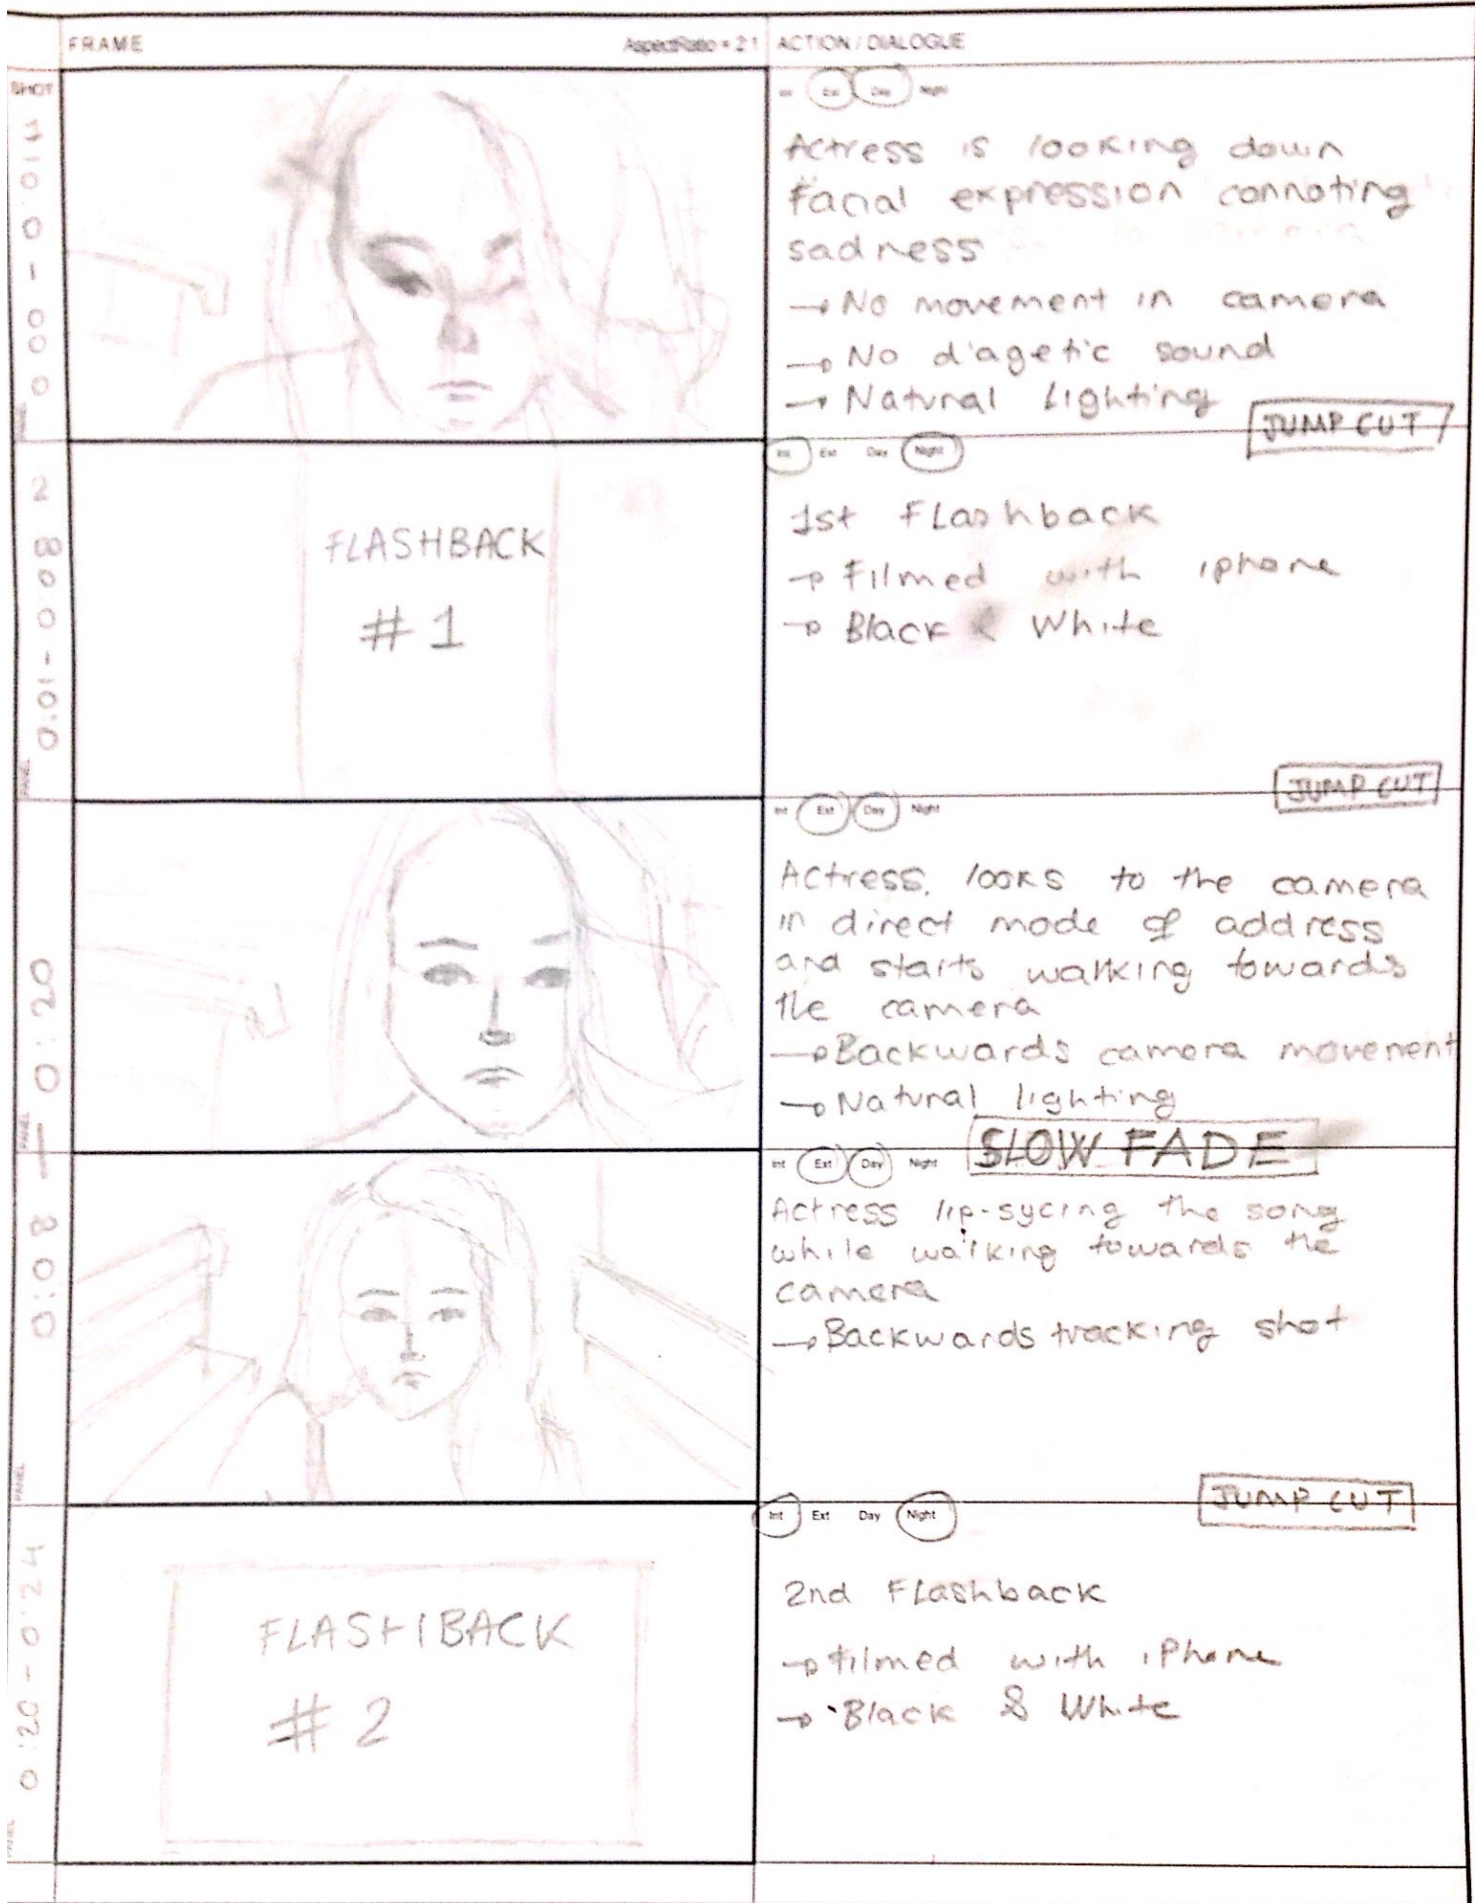 FRAME
AspectRatio = 2:1
ACTION / DIALOGUE
SHOT
1
Int Ext Day Night
Actress is looking down
Facial expression connoting
sadness
→ No movement in camera
→ No diagetic sound
→ Natural Lighting
JUMP CUT
2
FLASHBACK
#1
Int Ext Day Night
1st Flashback
→ Filmed with iphone
→ Black & White
JUMP CUT
PANEL
Int Ext Day Night
Actress. looks to the camera
in direct mode of address
and starts walking towards
the camera
→ Backwards camera movement
→ Natural lighting
SLOW FADE
PANEL
0:08 — 0:20
Int Ext Day Night
Actress lip-sycing the song
while walking towards the
camera
→ Backwards tracking shot
JUMP CUT
PANEL
0:20 - 0:24
FLASHBACK
#2
Int Ext Day Night
2nd Flashback
→ Filmed with iPhone
→ Black & White
PANEL